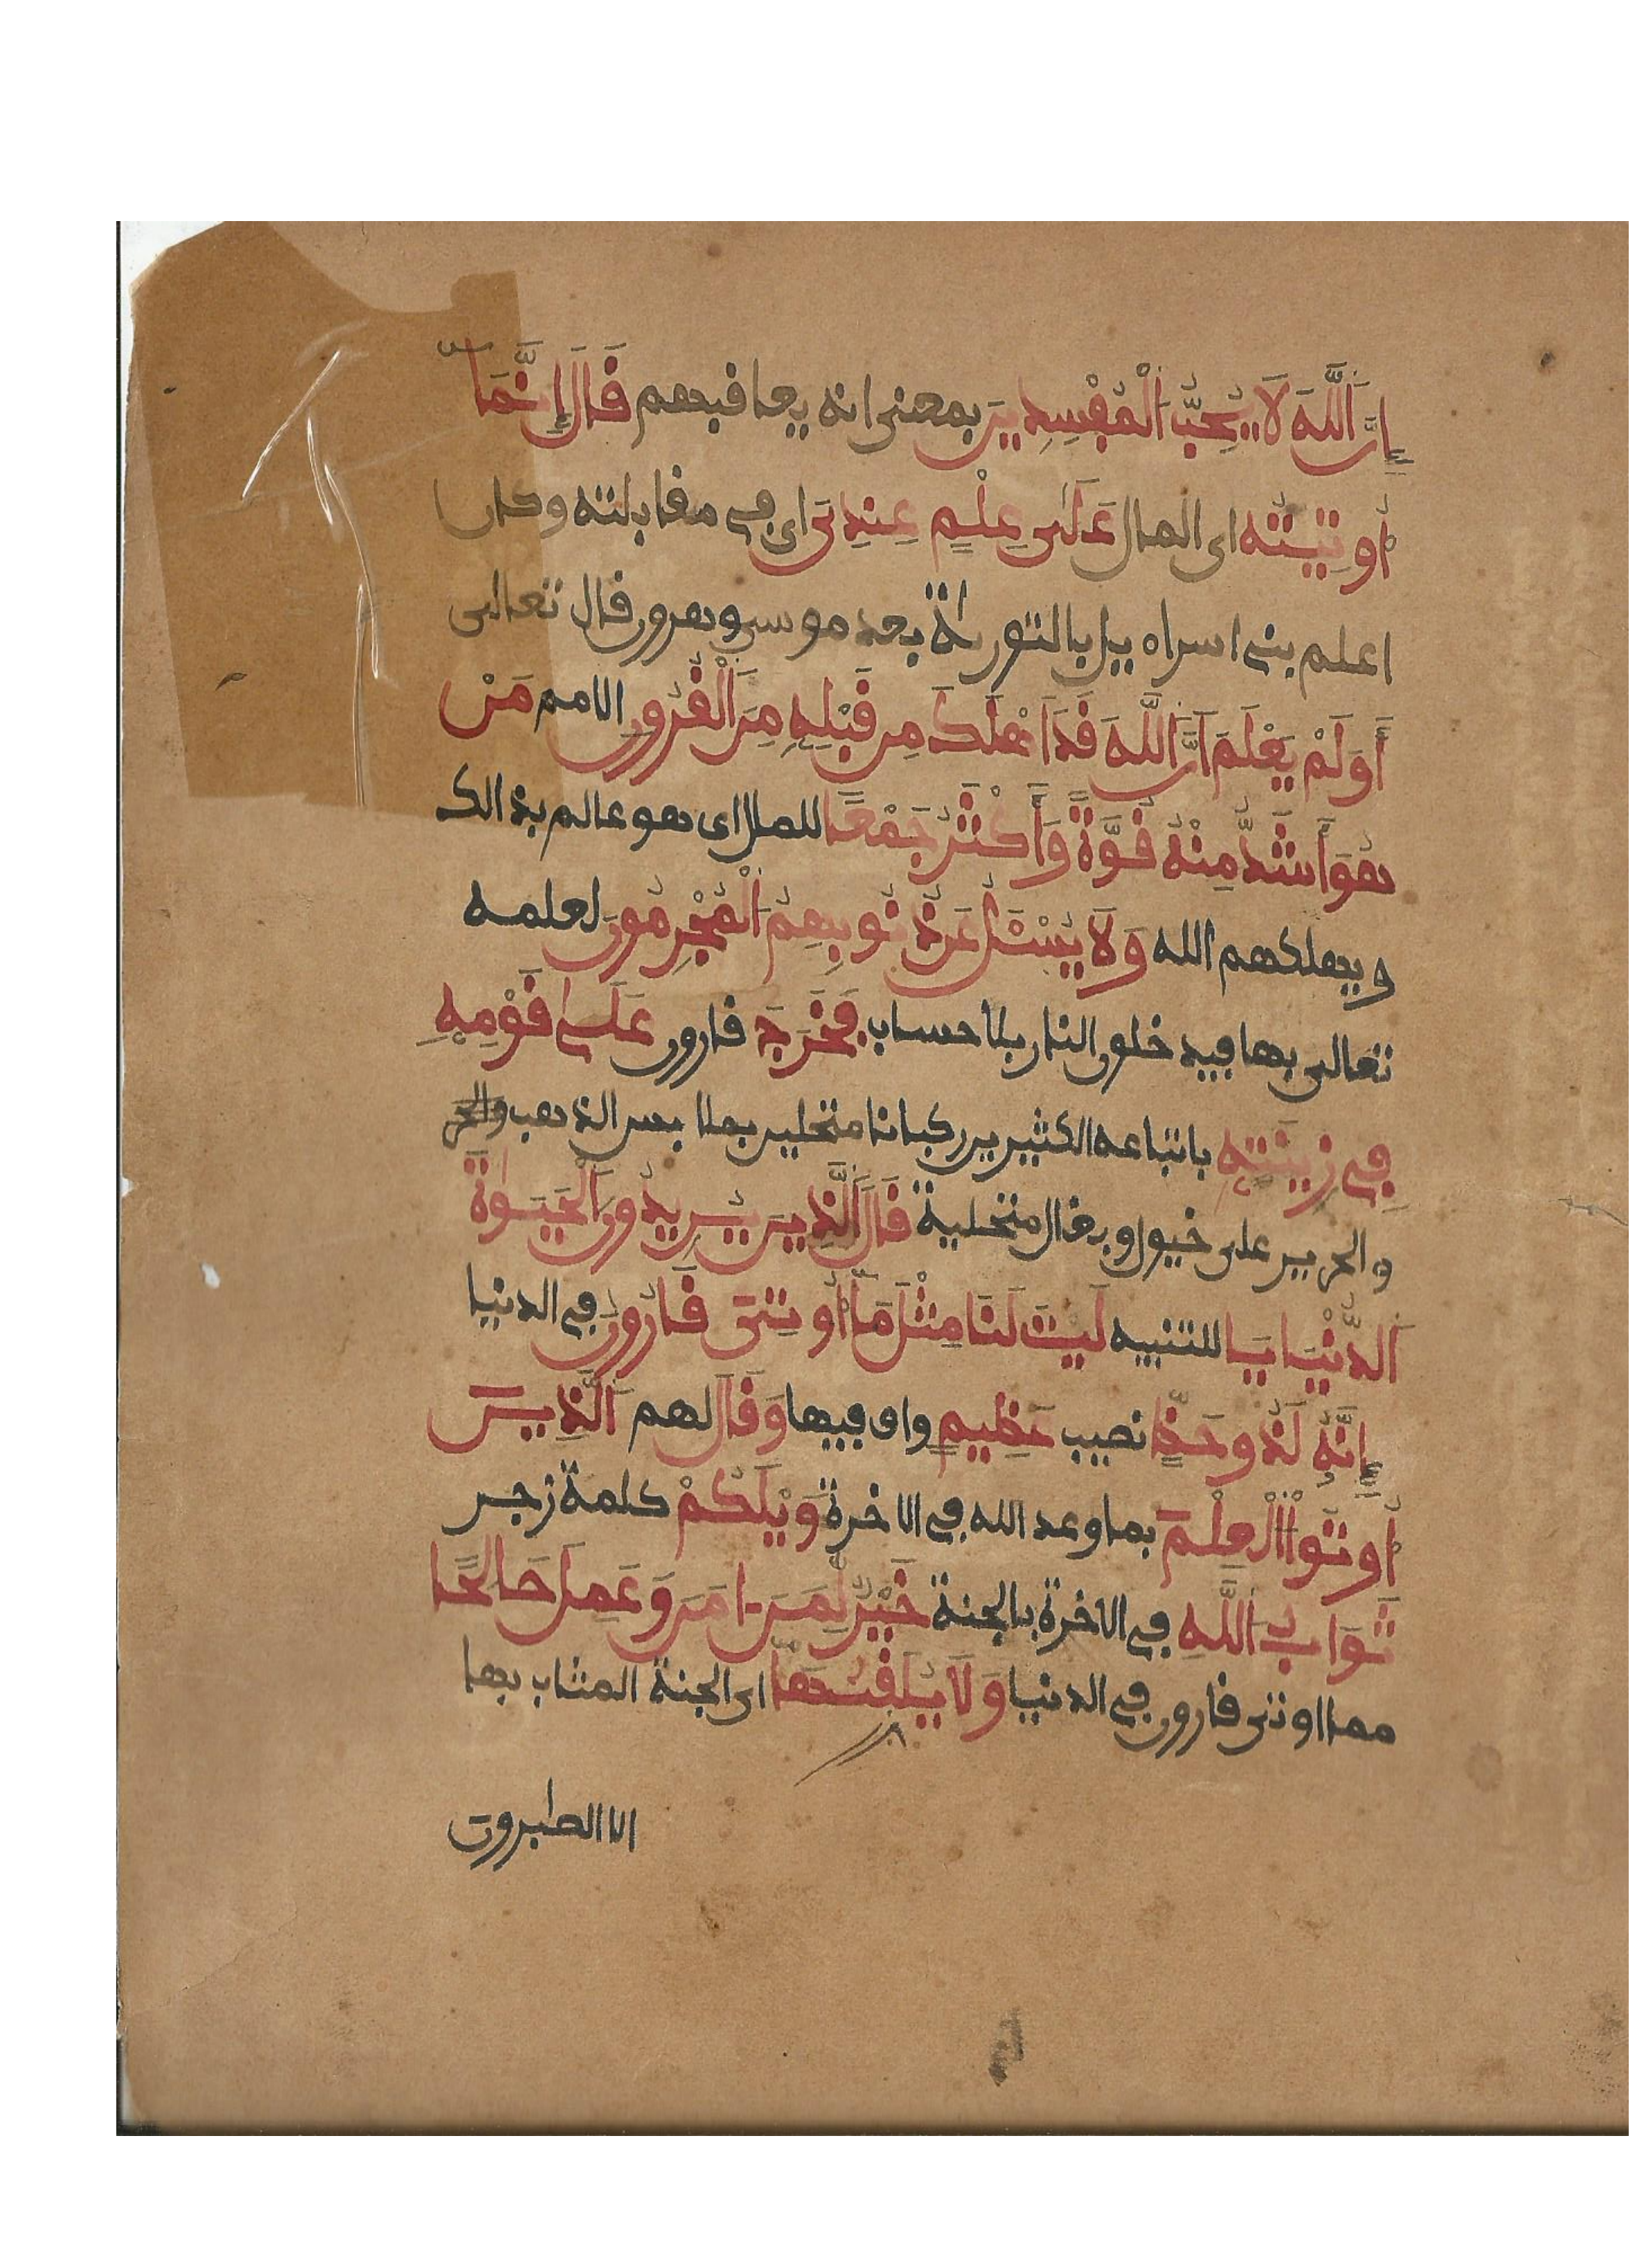 إِنَّ اَللَّهَ لَا يُحِبُّ اُلْمُفْسِدِينَ بمعنى انه يعاقبهم قَالَ إِنَّمَآ
أُوتِيتُهُ اى المال عَلَىٰ عِلْمٍ عِندِيَ اى في مقابلته وكان
اعلم بنى اسراءيل بالتورىٰة بعد موسى وهرون قال تعالى
أَوَلَمْ يَعْلَمَ اَنَّ اَللَّهَ قَدَ اَهْلَكَ مِن قَبْلِهِ مِنَ اَلْقُرُونِ الامم مَنْ
هُوَ أَشَدُّ مِنْهُ قُوَّةً وَأَكْثَرُ جَمْعًا للمال اى هو عالم بذالك
ويهلكهم الله وَلَا يُسْـَٔلُ عَن ذُنُوبِهِمُ اُلْمُجْرِمُونَ لعلمه
تعالى بها فيدخلون النار بلا حساب فَخَرَجَ قارون عَلَىٰ قَوْمِهِ
فِي زِينَتِهِ باتباعه الكثيرين ركبانا متحلين بملابس الذهب
والحرير على خيول وبغال متحلية قَالَ اَلَّذِينَ يُرِيدُونَ اَلْحَيَوٰةَ
اَلدُّنْيَا يَا للتنبيه لَيْتَ لَنَا مِثْلَ مَآ أُوتِيَ قَارُونُ في الدنيا
إِنَّهُ لَذُو حَظٍّ نصيب عَظِيمٍ واف فيها وَقَالَ لهم اَلَّذِينَ
أُوتُواْ اُلْعِلْمَ بما وعد الله في الاخرة وَيْلَكُمْ كلمة زجر
ثَوَابُ اُللَّهِ في الاخرة بالجنة خَيْرٌ لِّمَنَ اٰمَنَ وَعَمِلَ صَالِحًا
مما اوتى قارون في الدنيا وَلَا يُلَقَّىٰهَآ اى الجنة المثاب بها
الا الصبرون